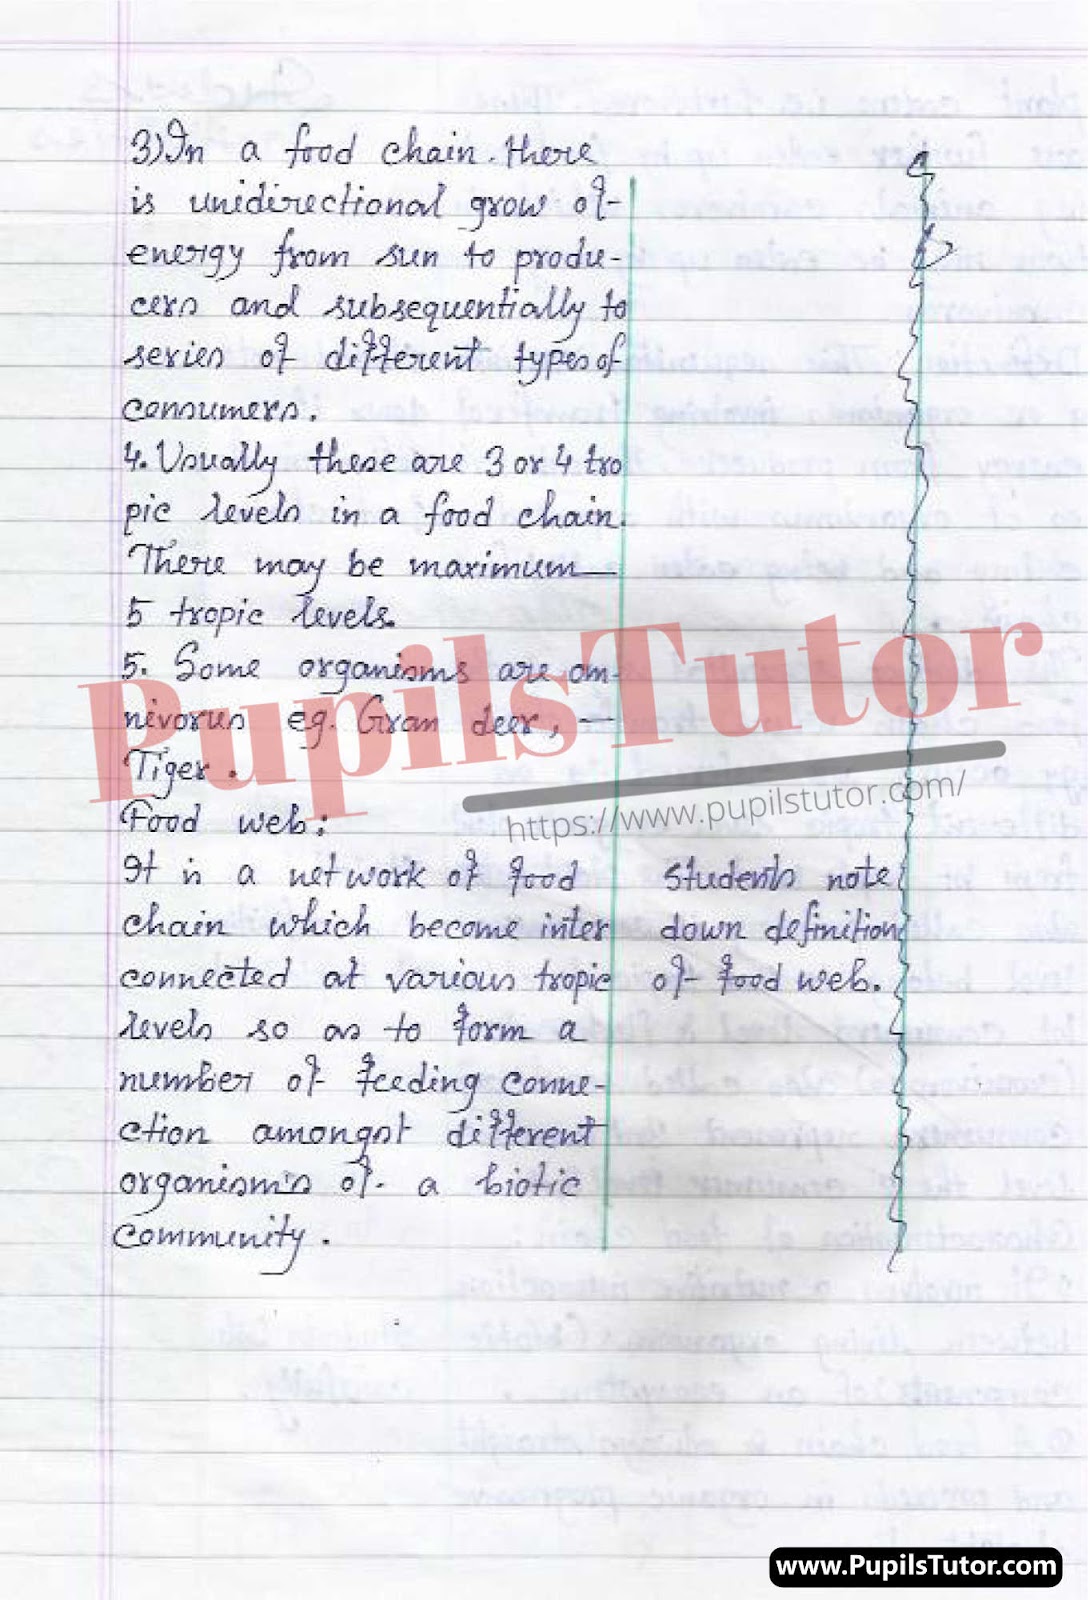 3) In a food chain. there
is unidirectional grow of
energy from sun to produ-
cers and subsequentially to
series of different types of
consumers.
4. Usually these are 3 or 4 tro
pic levels in a food chain.
There may be maximum
5 tropic levels.
5. Some organisms are om-
nivorus eg. Gran deer, —
Tiger.
Food web:
It is a network of food
chain which become inter
connected at various tropic
levels so as to form a
number of feeding conne-
ction amongst different
organism's of a biotic
community.
Students note
down definition
of food web.
PupilsTutor
https://www.pupilstutor.com/
www.PupilsTutor.com